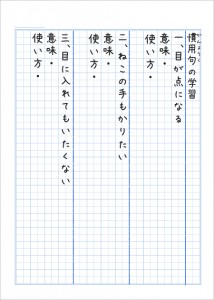 慣用句の学習
かんようく
一、目が点になる
意味・
使い方・
二、ねこの手もかりたい
意味・
使い方・
三、目に入れてもいたくない
意味・
使い方・